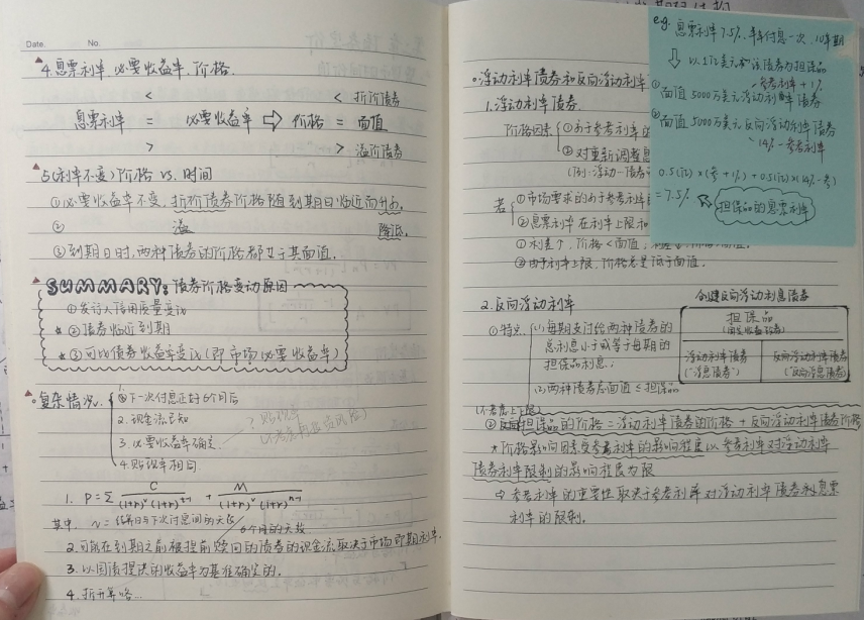 Date. No.
4.息票利率,必要收益率,价格.
< < 折价债券
息票利率 = 必要收益率 ⇨ 价格 = 面值
> > 溢价债券
5.(利率不变)价格 vs. 时间
①必要收益率不变,折价债券价格随到期日临近而升高.
② 溢 降低.
③到期日时,两种债券的价格都等于其面值.
SUMMARY: 债券价格变动原因
①发行人信用质量变动
*②债券临近到期
*③可比债券收益率变动(即市场必要收益率)
复杂情况.
1.下次付息正好6个月后
2.现金流已知
3.必要收益率确定
4.贴现率相同
1. P=Σ C/(1+r)^v(1+r)^t-1 + M/(1+r)^v(1+r)^n-1
其中, v= 结算日与下次付息间的天数/6个月的天数
2.可能在到期之前被提前赎回的债券的现金流取决于市场即期利率.
3.以同债提供的收益率为基准确定的.
4.折开算咯...
浮动利率债券和反向浮动利率
1.浮动利率债券.
价格因素 ①高于参考利率的
②对重新调整息
(例:浮动一债券
若 ①市场要求的高于参考利率
②息票利率在利率上限和
①利差↑,价格<面值;
②由于利率上限,价格总是低于面值.
2.反向浮动利率
①特点 (1)每期支付给两种债券的
总利息小于或等于每期的
担保品利息;
(2)两种债券总面值≤担保品
创建反向浮动利息债券
担保品
(固定收益债券)
浮动利率债券 反向浮动利率债券
("浮息债券") ("反向浮息债券")
(不考虑上下限)
②担保品的价格=浮动利率债券的价格+反向浮动利率债券价格
*价格影响因素受参考利率的影响程度以参考利率对浮动利率
债券利率限制的影响程度为限
⇨ 参考利率的重要性取决于参考利率对浮动利率债券利息票
利率的限制.
e.g. 息票利率7.5%,半年付息一次,10年期
以1亿美元的该债券为担保品
参考利率+1%
①面值5000万美元浮动利率债券
②面值5000万美元反向浮动利率债券
14%-参考利率
0.5(亿)×(参+1%)+0.5(亿)×(14%-参)
=7.5%
担保品的息票利率